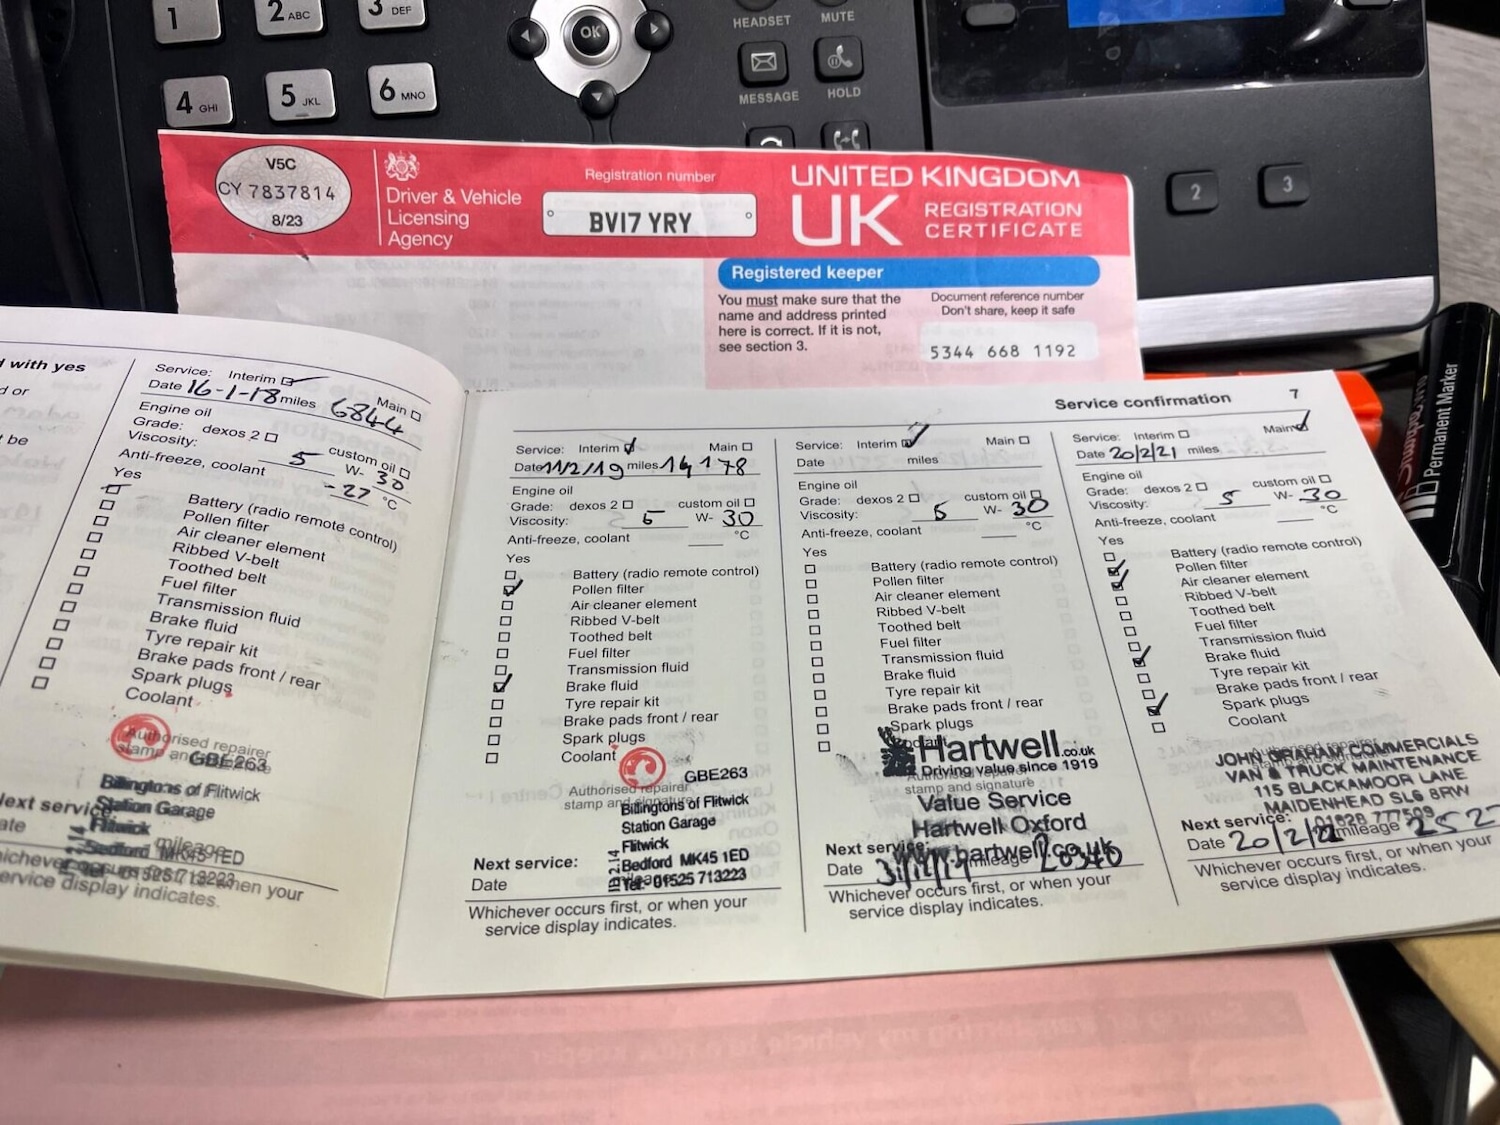 1
2 ABC
3 DEF
OK
HEADSET
MUTE
4 GHI
5 JKL
6 MNO
MESSAGE
HOLD
2
3
V5C
CY 7837814
8/23
Driver & Vehicle
Licensing
Agency
Registration number
BV17 YRY
UNITED KINGDOM
UK REGISTRATION
CERTIFICATE
Registered keeper
You must make sure that the
name and address printed
here is correct. If it is not,
see section 3.
Document reference number
Don't share, keep it safe
5344 668 1192
Permanent Marker
with yes
d or
t be
Service: Interim Main
Date 16-1-18 miles 6844
Engine oil
Grade: dexos 2 custom oil
Viscosity: 5 W- 30
Anti-freeze, coolant -27 °C
Yes
Battery (radio remote control)
Pollen filter
Air cleaner element
Ribbed V-belt
Toothed belt
Fuel filter
Transmission fluid
Brake fluid
Tyre repair kit
Brake pads front / rear
Spark plugs
Coolant
Authorised repairer
stamp and
GBE263
Billingtons of Flitwick
Station Garage
Flitwick
Bedford MK45 1ED
01525 713223
Next service:
mileage
Whichever occurs first, or when your
service display indicates.
Service confirmation 7
Service: Interim Main
Date 11/2/19 miles 14178
Engine oil
Grade: dexos 2 custom oil
Viscosity: 5 W- 30
Anti-freeze, coolant °C
Yes
Battery (radio remote control)
Pollen filter
Air cleaner element
Ribbed V-belt
Toothed belt
Fuel filter
Transmission fluid
Brake fluid
Tyre repair kit
Brake pads front / rear
Spark plugs
Coolant
Authorised repairer
stamp and signature
GBE263
Billingtons of Flitwick
Station Garage
Flitwick
Bedford MK45 1ED
Tel: 01525 713223
Next service:
Date mileage
Whichever occurs first, or when your
service display indicates.
Service: Interim Main
Date miles
Engine oil
Grade: dexos 2 custom oil
Viscosity: 5 W- 30
Anti-freeze, coolant °C
Yes
Battery (radio remote control)
Pollen filter
Air cleaner element
Ribbed V-belt
Toothed belt
Fuel filter
Transmission fluid
Brake fluid
Tyre repair kit
Brake pads front / rear
Spark plugs
Coolant
Hartwell.co.uk
Driving value since 1919
Authorised repairer
stamp and signature
Value Service
Hartwell Oxford
www.hartwell.co.uk
Next service:
Date 31/12/19 mileage 20340
Whichever occurs first, or when your
service display indicates.
Service: Interim Main
Date 20/2/21 miles
Engine oil
Grade: dexos 2 custom oil
Viscosity: 5 W- 30
Anti-freeze, coolant °C
Yes
Battery (radio remote control)
Pollen filter
Air cleaner element
Ribbed V-belt
Toothed belt
Fuel filter
Transmission fluid
Brake fluid
Tyre repair kit
Brake pads front / rear
Spark plugs
Coolant
JOHN GRAHAM COMMERCIALS
VAN & TRUCK MAINTENANCE
115 BLACKAMOOR LANE
MAIDENHEAD SL6 8RW
01628 777509
Next service:
Date 20/2/22 mileage 2527
Whichever occurs first, or when your
service display indicates.